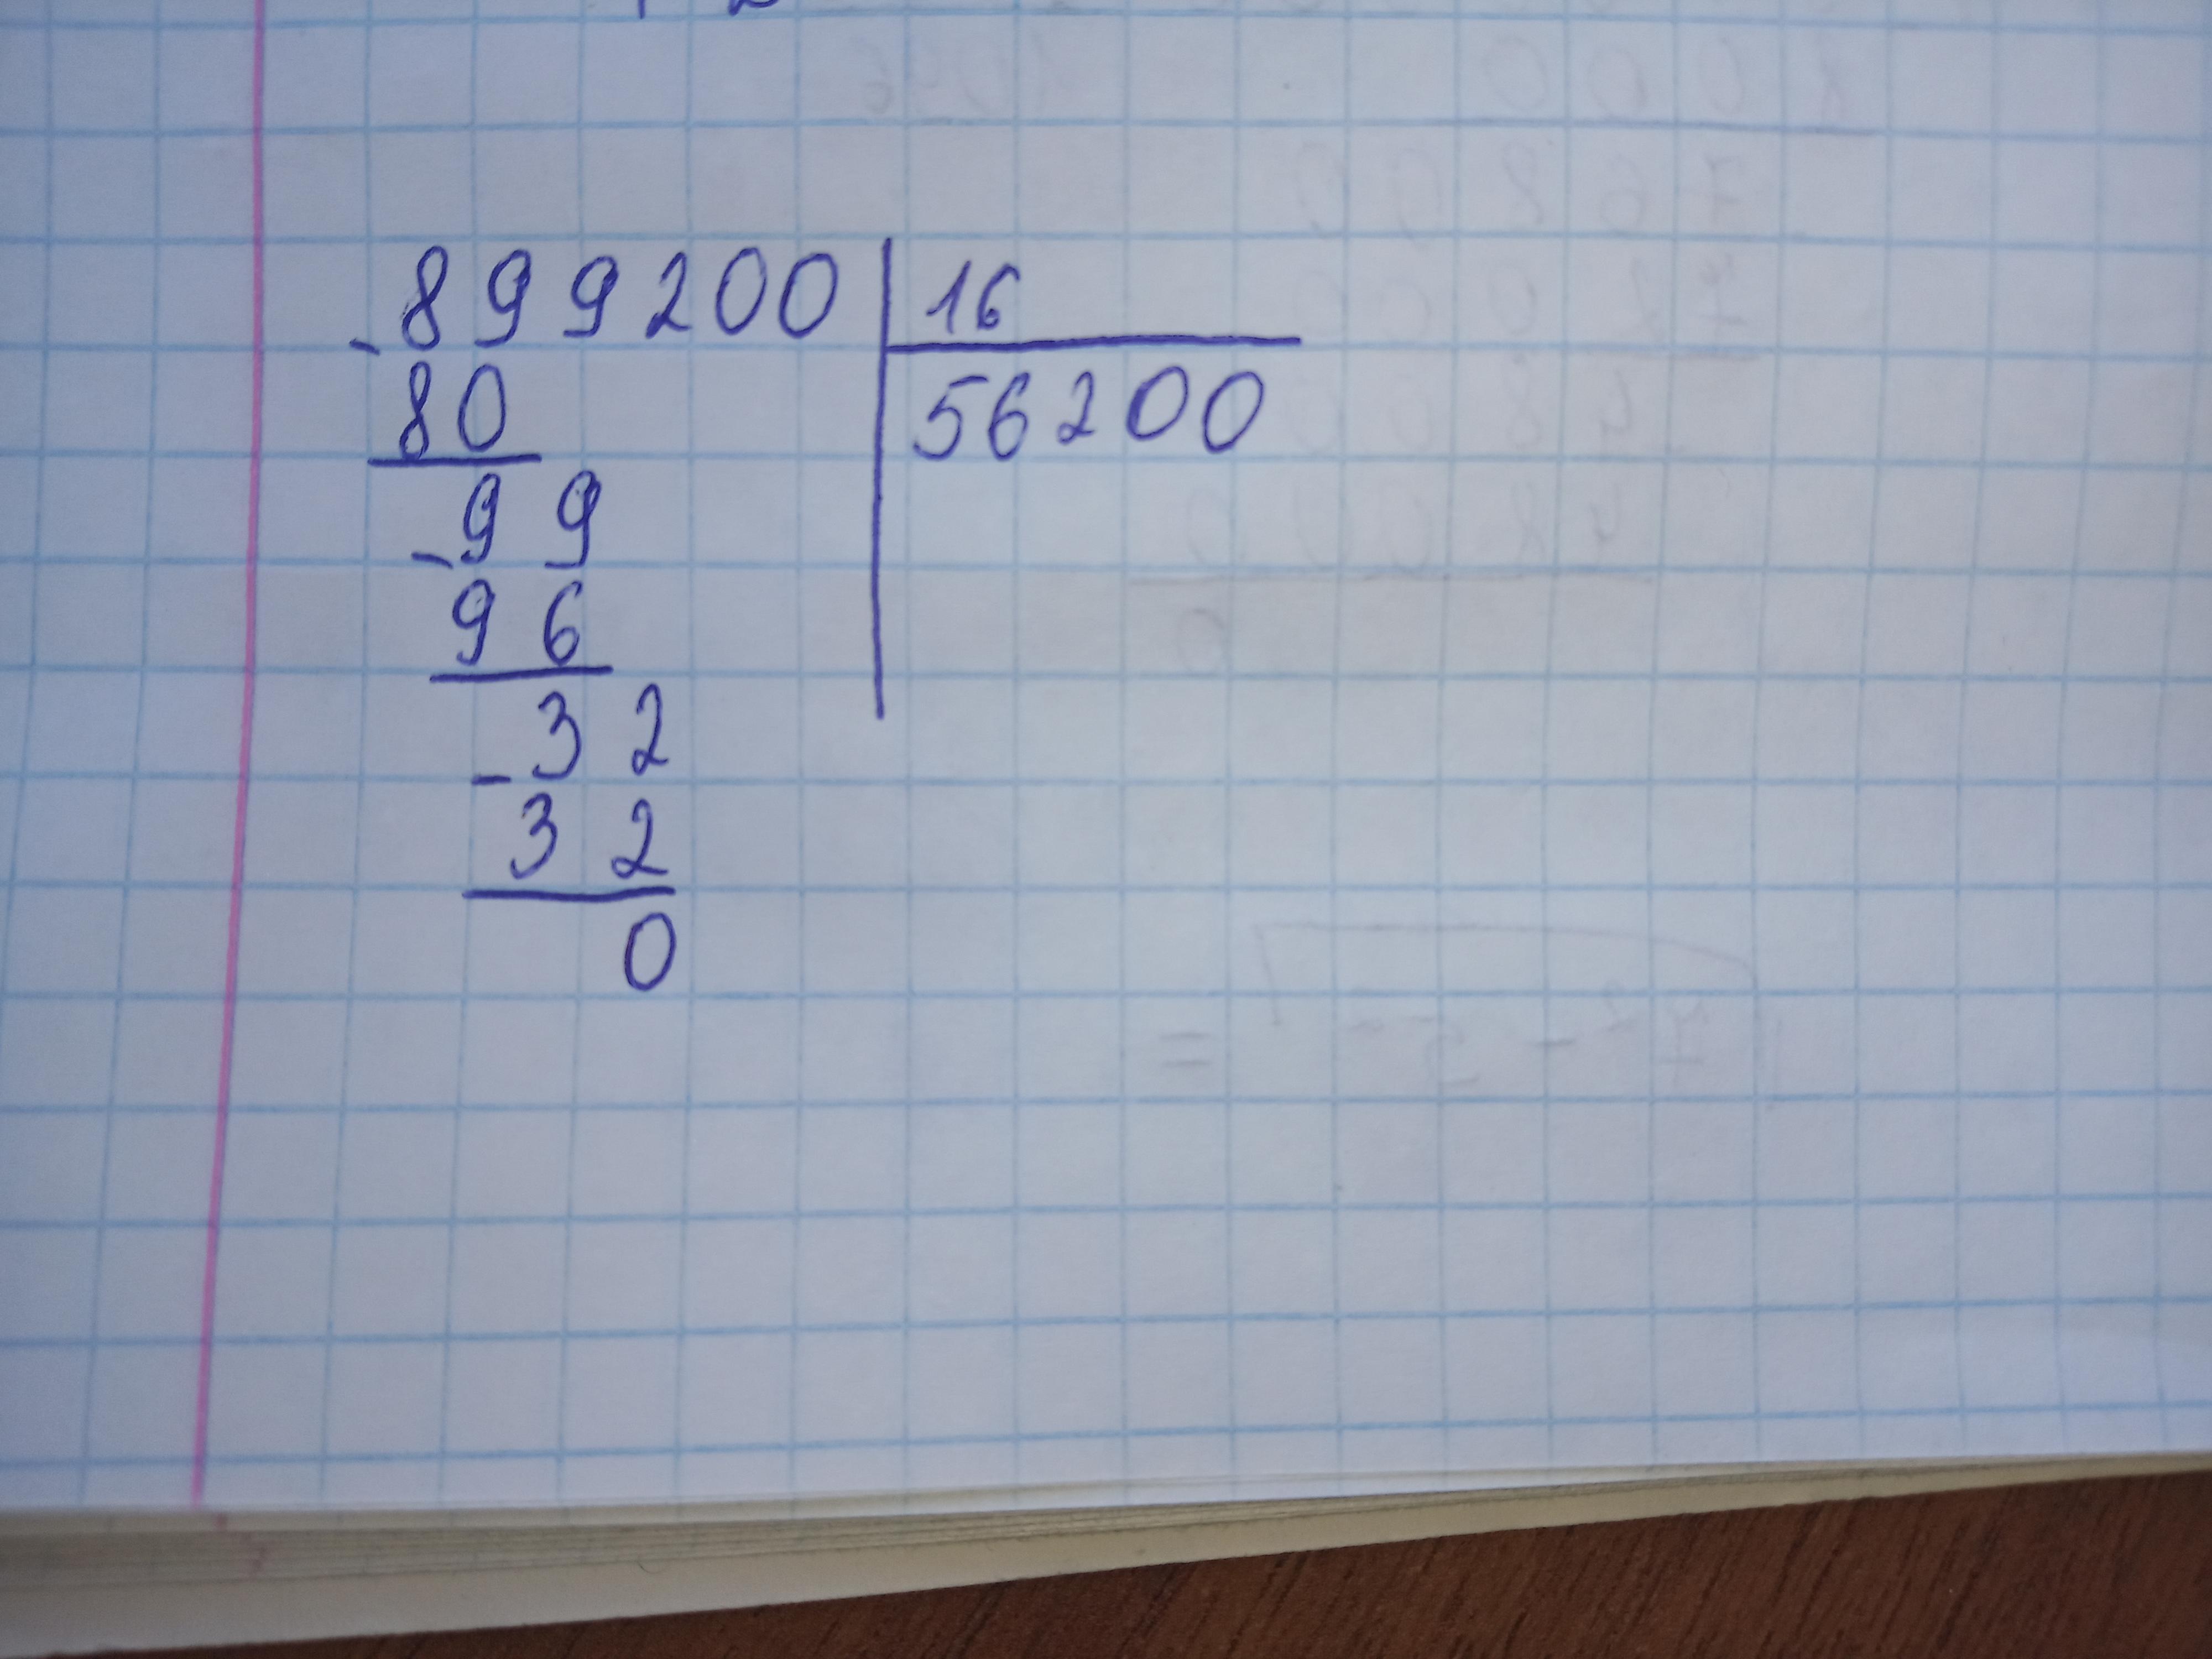 -899200 | 16
80 | 56200
-99
96
-32
32
0